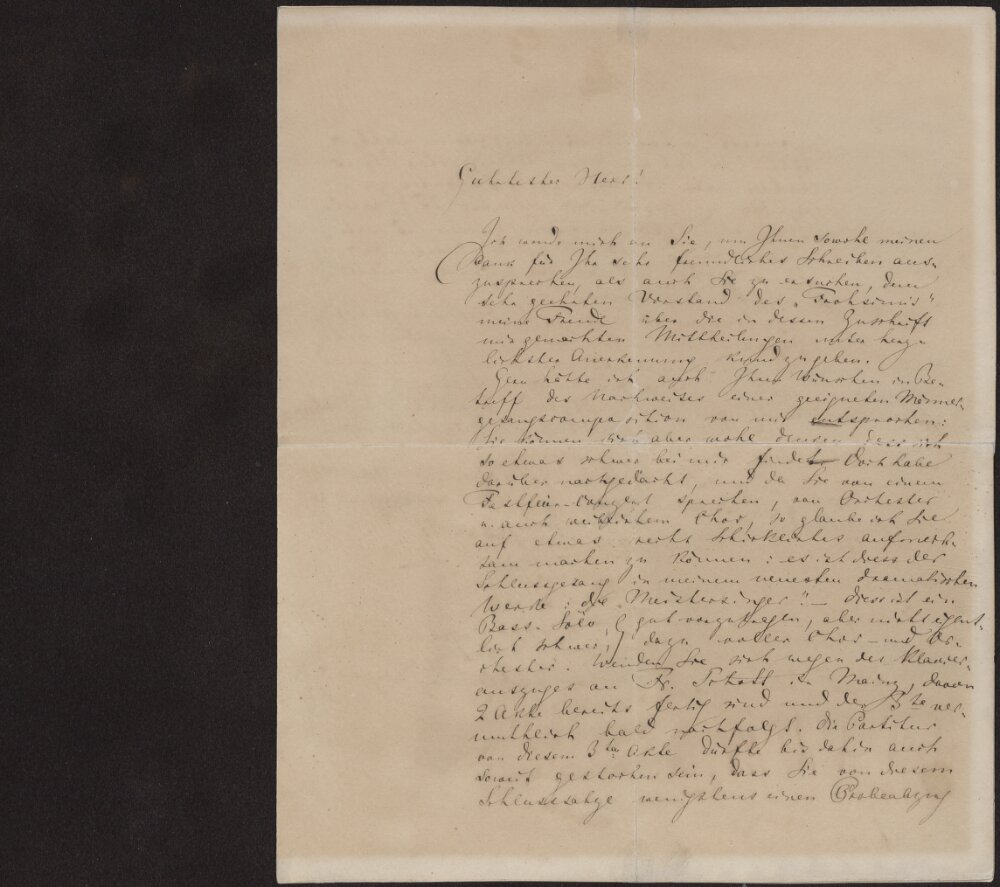 Geehrtester Herr!
Ich wende mich an Sie, um Ihnen sowohl meinen
Dank für Ihr sehr freundliches Schreiben aus-
zusprechen, als auch Sie zu ersuchen, dem
sehr geehrten Vorstand des „Frohsinns"
meine Freude über die in dessen Zuschrift
mir gemachten Mittheilungen unter herz-
lichster Anerkennung kund zu geben.
Gern hätte ich auch Ihren Wünschen in Be-
treff des Nachweises einer geeigneten Männer-
gesangscomposition von mir entsprochen:
Sie können sich aber wohl denken dass sich
so etwas schwer bei mir findet. Doch habe
darüber nachgedacht, und da Sie von einem
Festfeier-Conzert sprechen, von Orchester
u. auch weiblichem Chor, so glaube ich Sie
auf etwas recht Schickliches aufmerk-
sam machen zu können: es ist diess der
Schlussgesang in meinem neuesten dramatischen
Werke: die „Meistersinger". — Diess ist ein
Bass-Solo, (gut vorzutragen, aber nicht eigent-
lich schwer,) dazu voller Chor – und Or-
chester. Wenden Sie sich wegen des Klavier-
auszuges an Fr. Schott in Mainz, davon
2 Akte bereits fertig sind und der 3te ver-
muthlich bald nachfolgt. Die Partitur
von diesem 3ten Akte dürfte bis dahin auch
soweit gestochen sein, dass Sie von diesem
Schlusssatze wenigstens einen Probeabzug